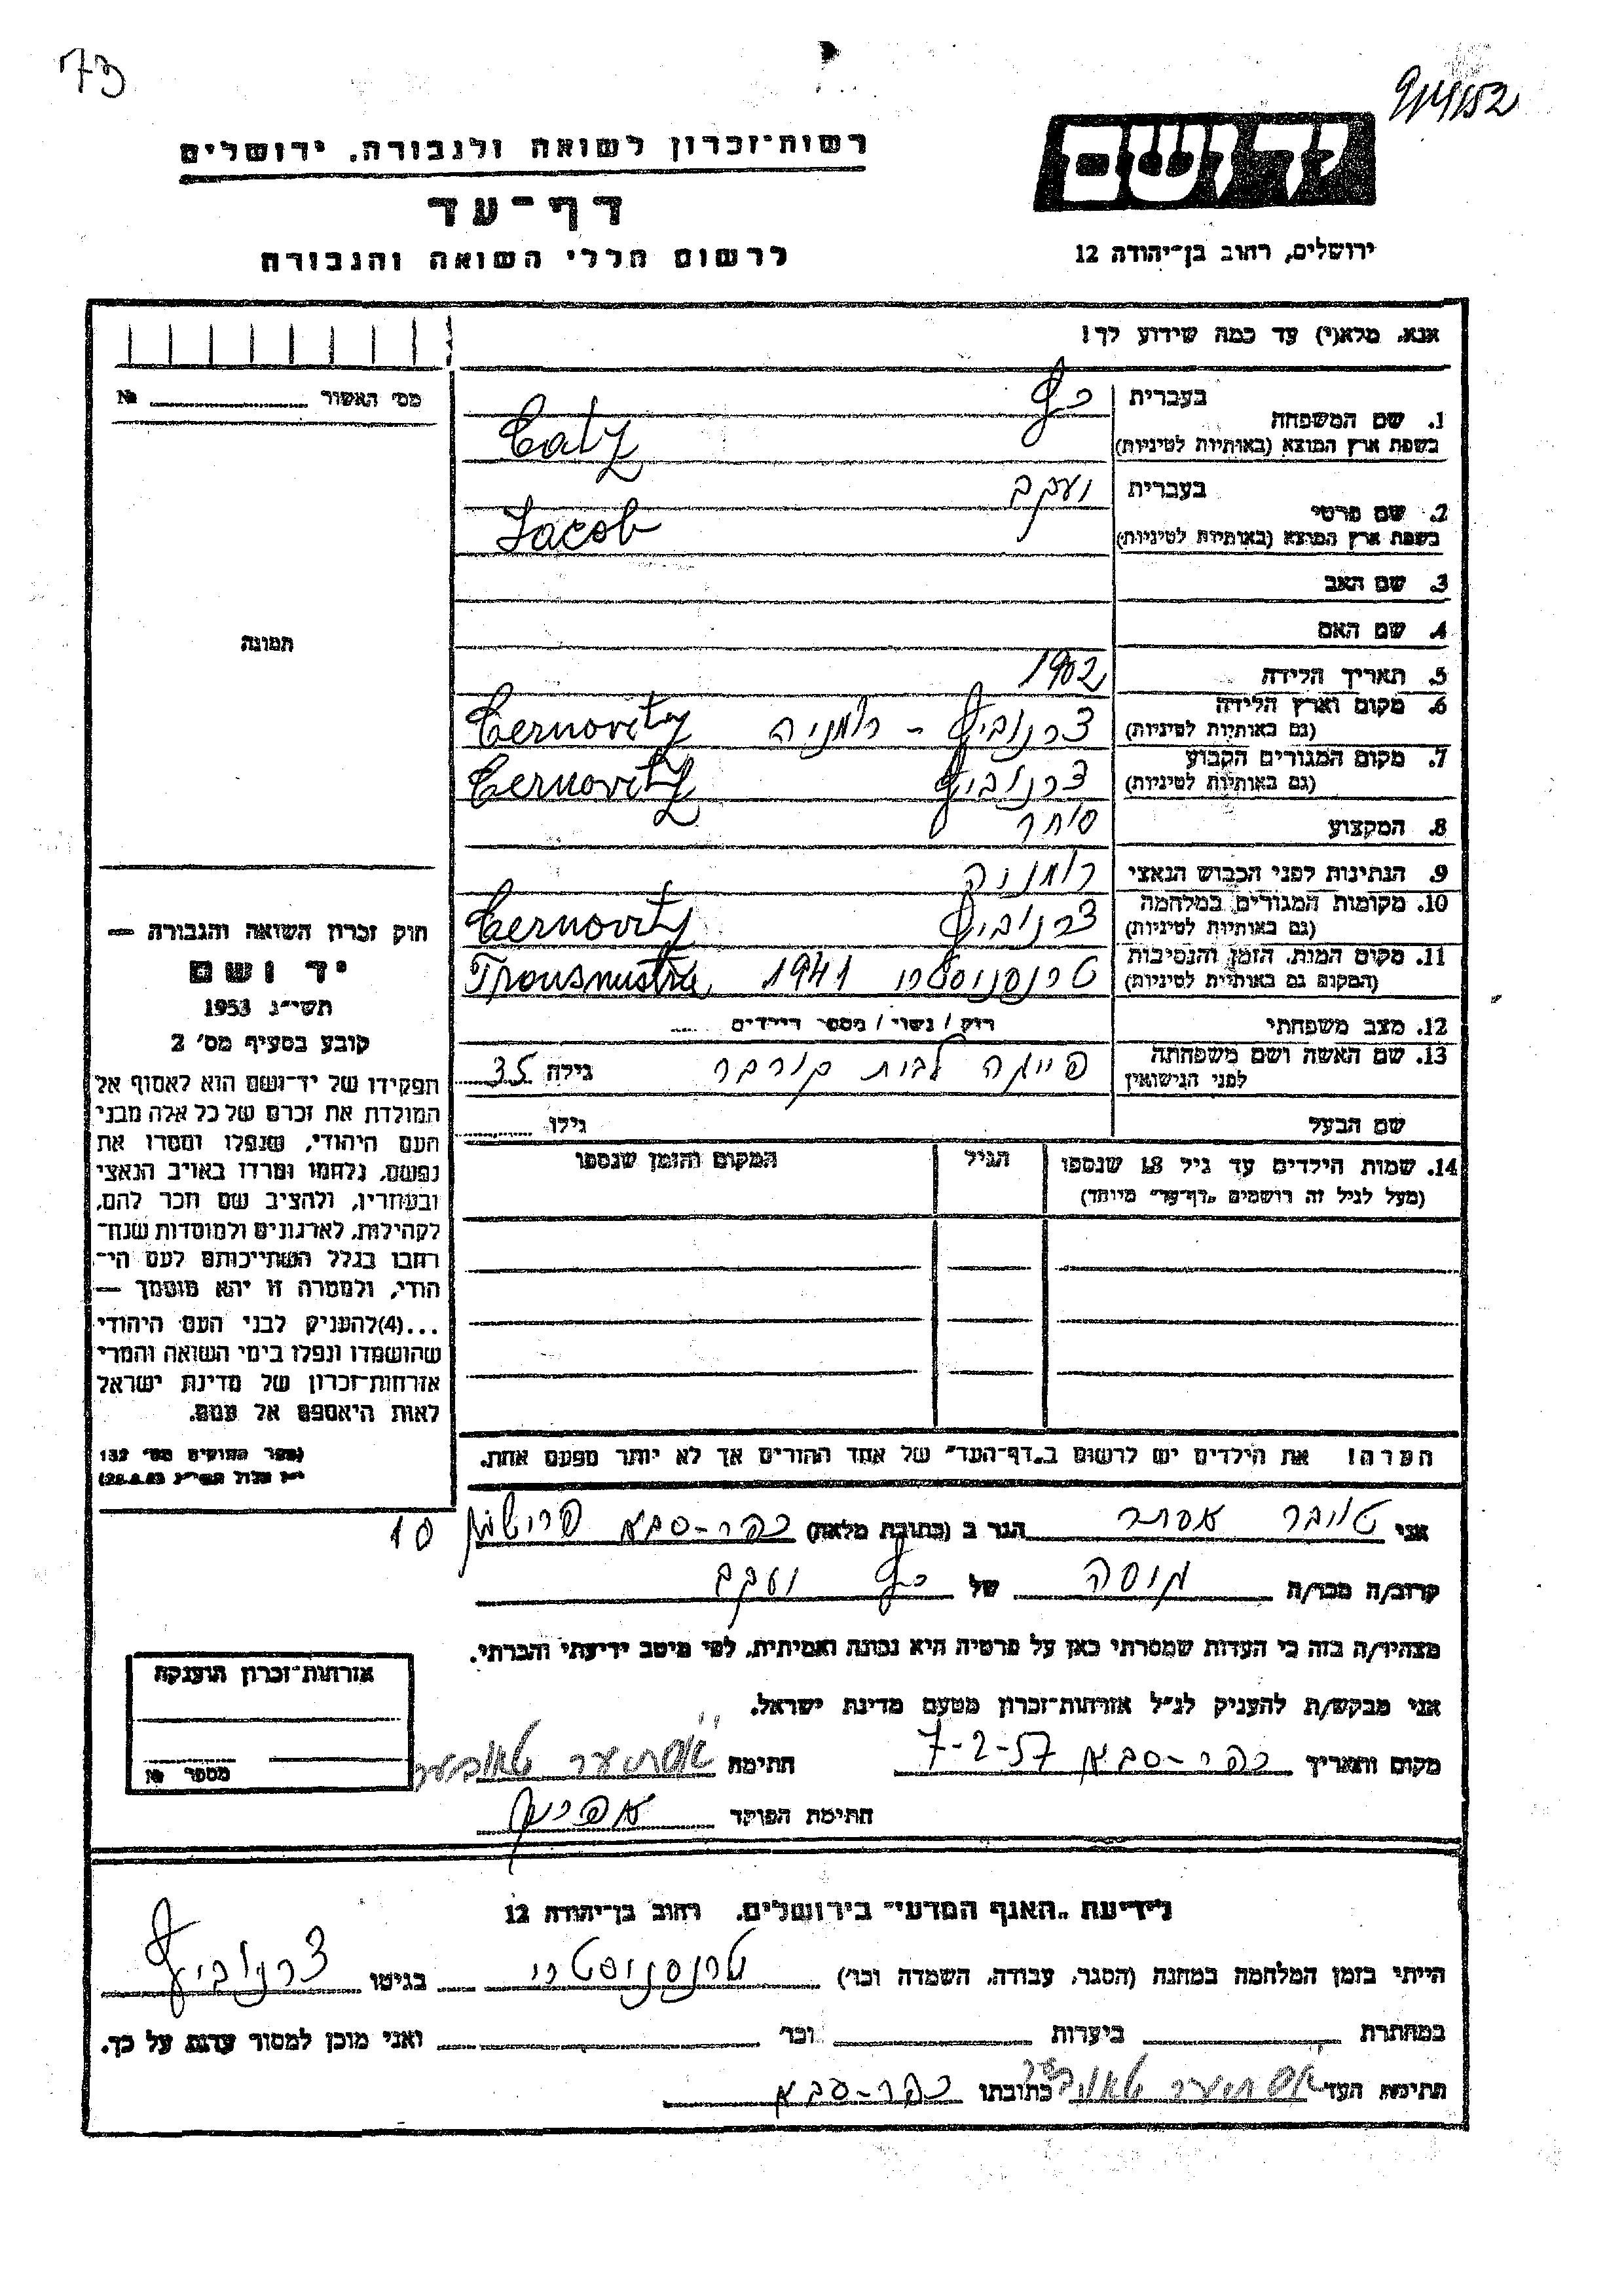 73
רשות־זכרון לשואה ולגבורה. ירושלים
דף־עד
לרשום חללי השואה והגבורה
יד ושם
ירושלים, רחוב בן־יהודה 12
אנא, מלא(י) עד כמה שידוע לך!
מס' האשור № 
תמונה
1. שם המשפחה
בעברית כץ
בשפת ארץ המוצא (באותיות לטיניות) Catz
2. שם פרטי
בעברית יעקב
בשפת ארץ המוצא (באותיות לטיניות) Jacob
3. שם האב
4. שם האם
5. תאריך הלידה 1902
6. מקום וארץ הלידה צרנוביץ - רומניה Cernovitz
(גם באותיות לטיניות)
7. מקום המגורים הקבוע צרנוביץ Cernovitz
(גם באותיות לטיניות)
8. המקצוע סוחר
9. הנתינות לפני הכבוש הנאצי רומניה
10. מקומות המגורים במלחמה צרנוביץ Cernovitz
(גם באותיות לטיניות)
11. מקום המות, הזמן והנסיבות טרנסניסטרי 1941
(המקום גם באותיות לטיניות)
12. מצב משפחתי רוק / נשוי / מספר הילדים
13. שם האשה ושם משפחתה לבית גילה 35
לפני הנישואין
שם הבעל גילו
14. שמות הילדים עד גיל 18 שנספו
(מעל לגיל זה רושמים „דף־עד" מיוחד)
הגיל
המקום והזמן שנספו
הערה! את הילדים יש לרשום ב„דף־העד" של אחד ההורים אך לא יותר מפעם אחת.
חוק זכרון השואה והגבורה —
יד ושם
תשי"ג 1953
קובע בסעיף מס' 2
תפקידו של יד־ושם הוא לאסוף אל
המולדת את זכרם של כל אלה מבני
העם היהודי, שנפלו ומסרו את
נפשם, נלחמו ומרדו באויב הנאצי
ובעוזריו, ולהציב שם וזכר להם,
לקהילות, לארגונים ולמוסדות שנח־
רבו בגלל השתייכותם לעם הי־
הודי, ולמטרה זו יהא מוסמך —
...(4)להעניק לבני העם היהודי
שהושמדו ונפלו בימי השואה והמרי
אזרחות־זכרון של מדינת ישראל
לאות היאספם אל עמם.
(ספר החוקים מס' 132
אני טויבר אסתר הגר ב (כתובת מלאה) כפר-סבא 10
קרוב/ה מכר/ה גיסה של כץ יעקב
מצהיר/ה בזה כי העדות שמסרתי כאן על פרטיה היא נכונה ואמיתית, לפי מיטב ידיעתי והכרתי.
אני מבקש/ת להעניק לנ"ל אזרחות־זכרון מטעם מדינת ישראל.
מקום ותאריך כפר-סבא 7-2-57 חתימה
חתימת הפוקד
אזרחות־זכרון הוענקה
מספר №
לידיעת „האגף המדעי" בירושלים, רחוב בן־יהודה 12
הייתי בזמן המלחמה במחנה (הסגר, עבודה, השמדה וכו') טרנסניסטרי בגיטו צרנוביץ
במחתרת ביערות וכו' ואני מוכן למסור עדות על כך.
חתימת העד כתובתו כפר-סבא